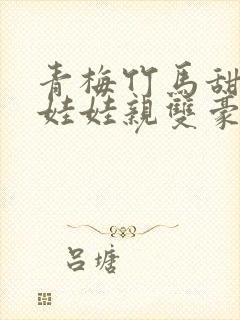 青梅竹馬甜
娃娃親雙豪
呂塘